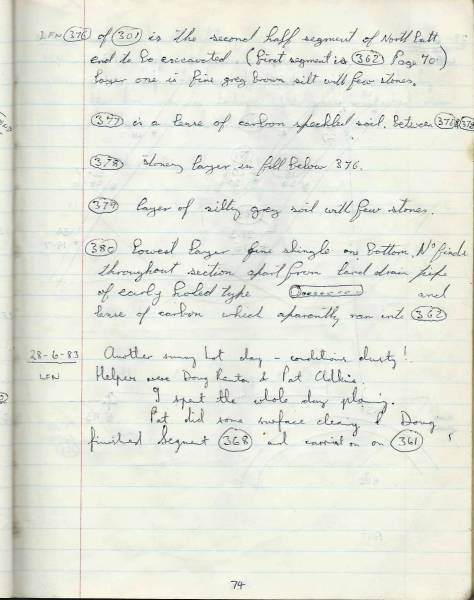 LFN 376 of 301 is the second half segment of North Part
end to be excavated (first segment is 362 Page 70)
layer one is fine grey brown silt with few stones.
377 is a lense of carbon speckled soil. Between 376 & 378
378 stoney layer in fill below 376.
379 layer of silty grey soil with few stones.
380 Lowest layer fine shingle on bottom, No finds
throughout section apart from land drain pipe
of early holed type and
lense of carbon which aparently ran into 362
28-6-83 Another sunny hot day - conditions dusty!
LFN Helpers were Doug & Pat
I spent the whole day planing.
Pat did some surface cleaning & Doug
finished Segment 368 and carried on on 361
74